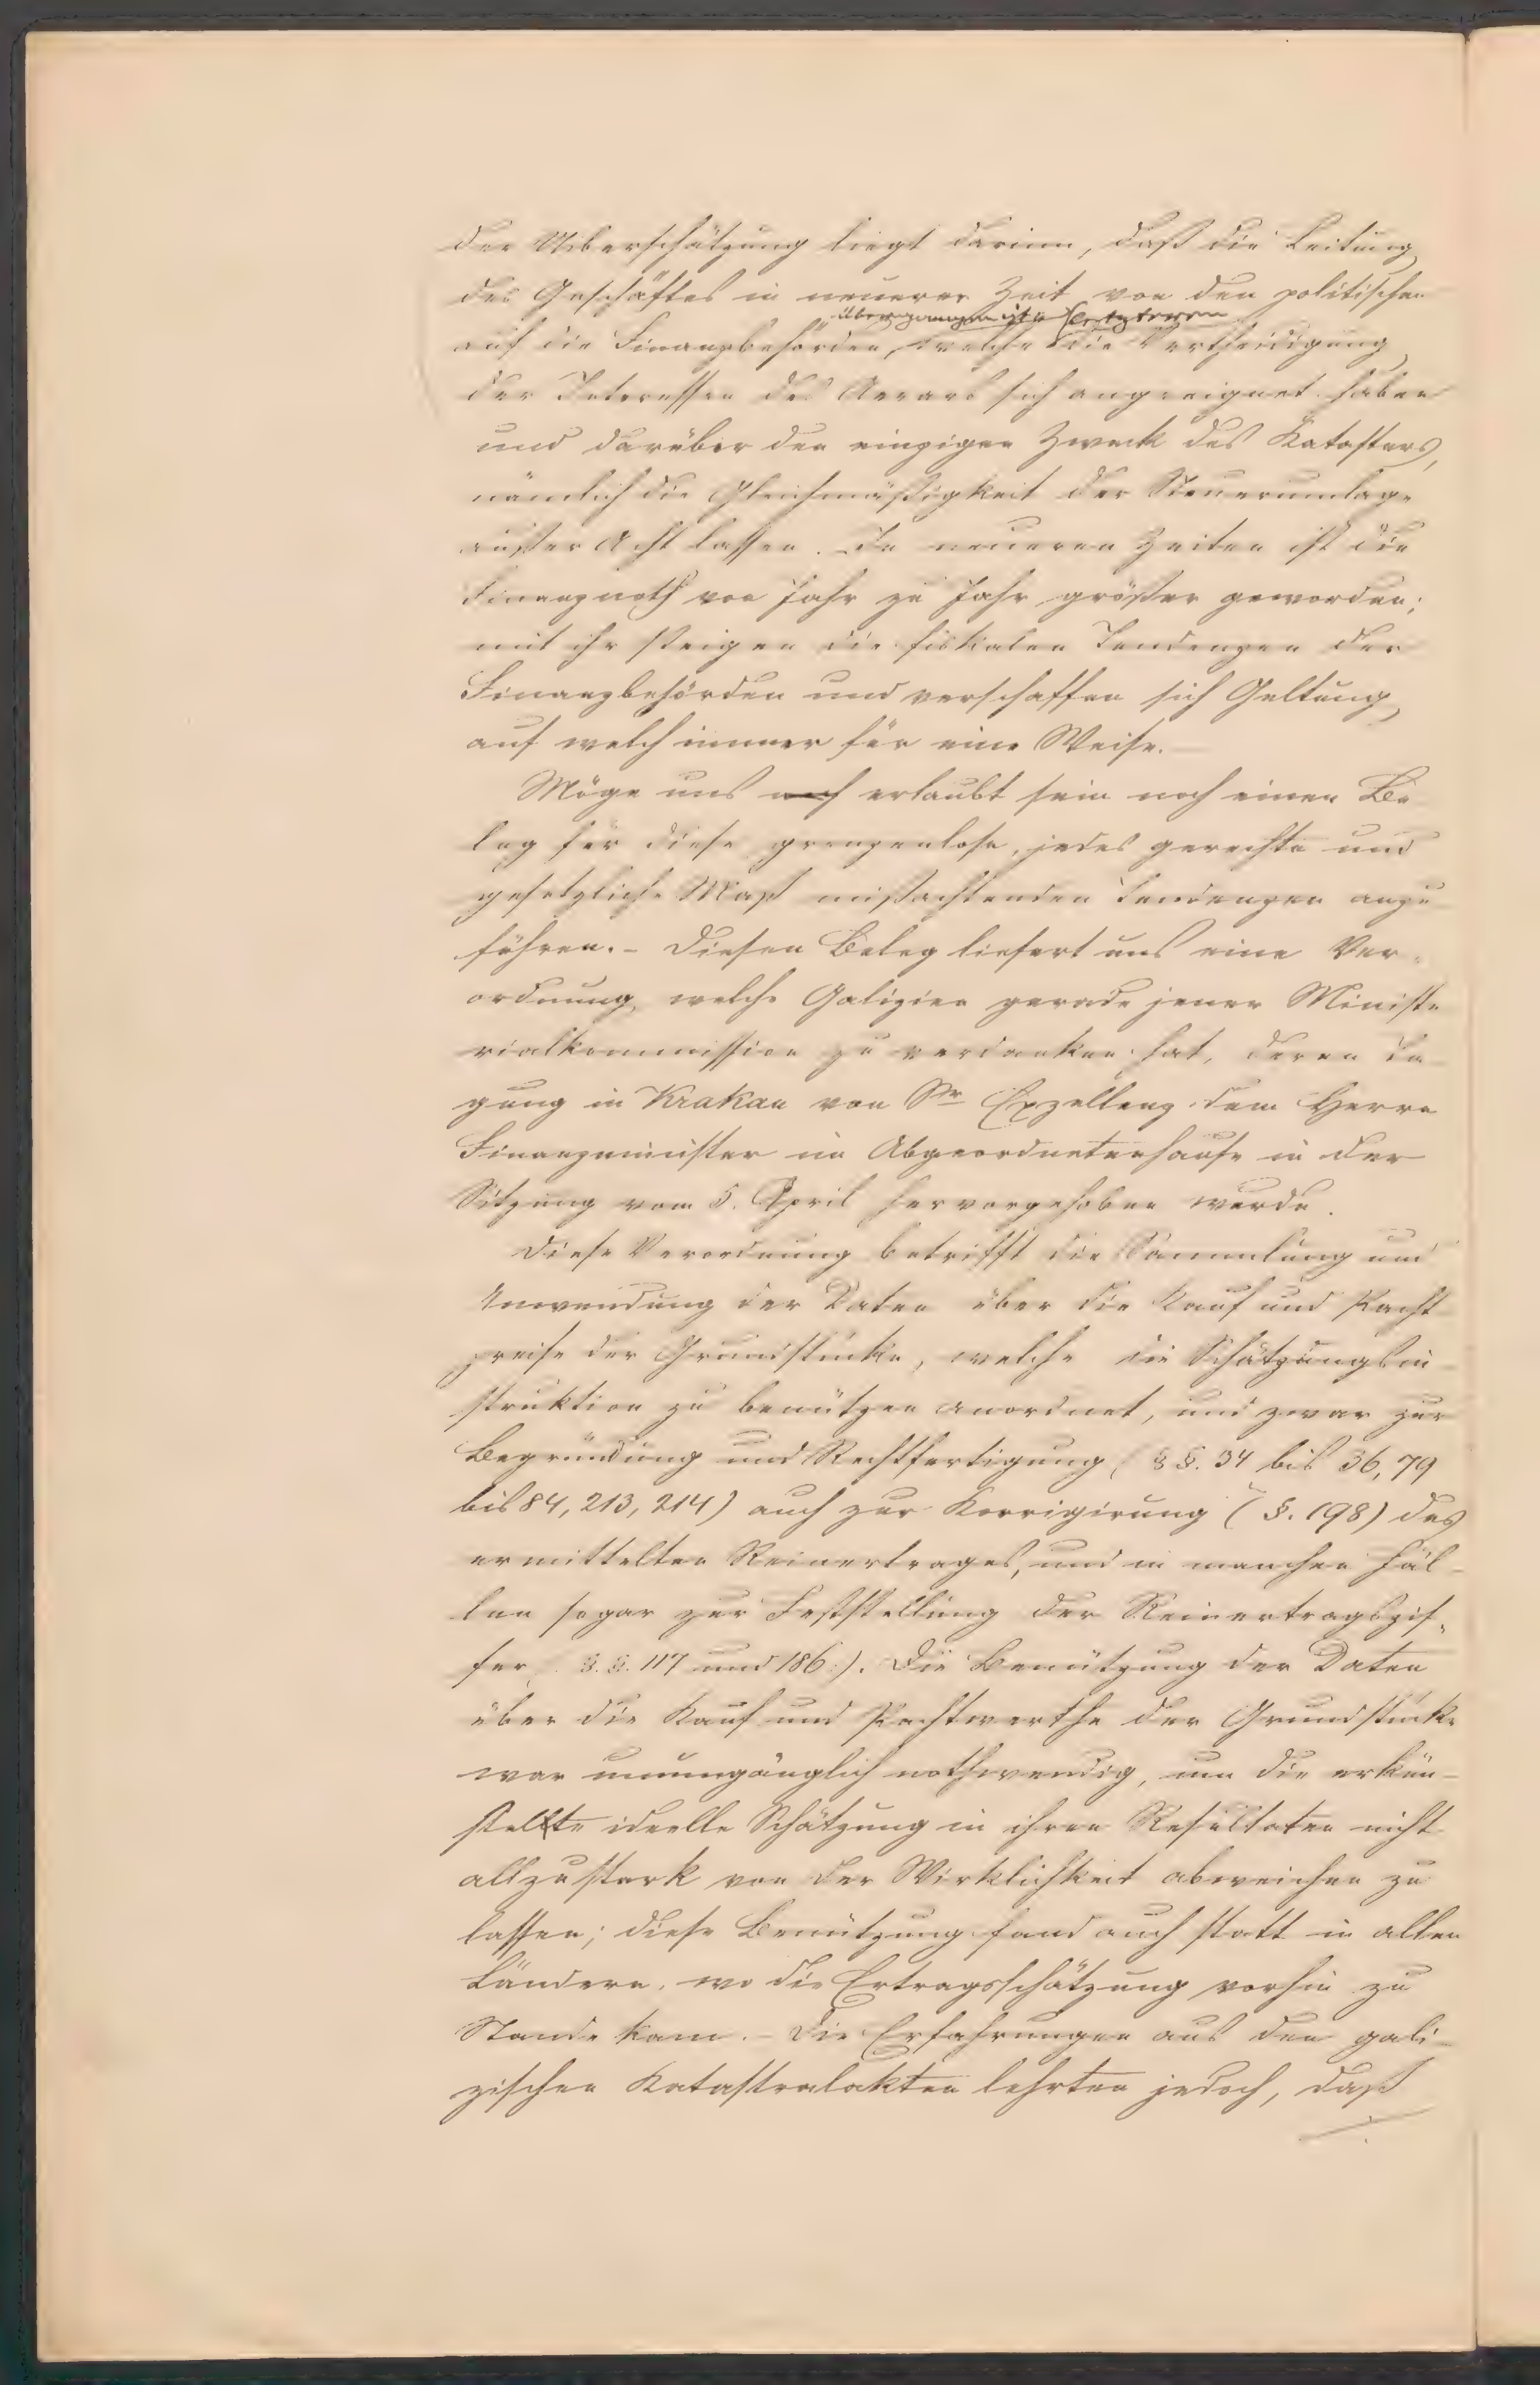 der Ueberschätzung liegt darinn, daß die Leitung
des Geschäftes in neuerer Zeit von den politischen
übergegangen ist Letzteren
auf die Finanzbehörden, welche die Vertheidigung
der Interessen des Aerars sich angeeignet haben
und darüber den einzigen Zweck des Katasters,
nämlich die Gleichmäßigkeit der Steuerumlage
außer Acht lassen. In neueren Zeiten ist die
Finanznoth von Jahr zu Jahr größer geworden;
mit ihr steigen die fiskalen Tendenzen der
Finanzbehörden und verschaffen sich Geltung
auf welch immer für eine Weise.
Möge uns noch erlaubt sein noch einen Be
leg für diese grenzenlose, jedes gerechte und
gesetzliche Maß mißachtenden Tendenzen anzu
führen. – Diesen Beleg liefert uns eine Ver-
ordnung, welche Galizien gerade jener Ministe
rialkommission zu verdanken hat, deren Ta
gung in Krakau von Sr Exzellenz dem Herrn
Finanzminister im Abgeordnetenhause in der
Sitzung vom 5. April hervorgehoben wurde.
Diese Verordnung betrifft die Sammlung und
Anwendung der Daten über die Kauf und Pacht
preise der Grundstücke, welche die Schätzungsin
struktion zu benützen anordnet, und zwar zur
Begründung und Rechtfertigung (§§. 34 bis 36, 79
bis 84, 213, 214) auch zur Korrigirung (§. 198) des
ermittelten Reinertrages, und in manchen Fäl-
len sogar zur Feststellung der Reinertragszif-
fer (§.§. 117 und 186). Die Benützung der Daten
über die Kauf und Pachtwerthe der Grundstücke
war unumgänglich nothwendig, um die erkün-
stelte ideelle Schätzung in ihren Resultaten nicht
allzustark von der Wirklichkeit abweichen zu
lassen; diese Benützung fand auch statt in allen
Ländern, wo die Ertragsschätzung vorhin zu
Stande kam. – Die Erfahrungen aus den gali-
zischen Katastralakten lehrten jedoch, daß